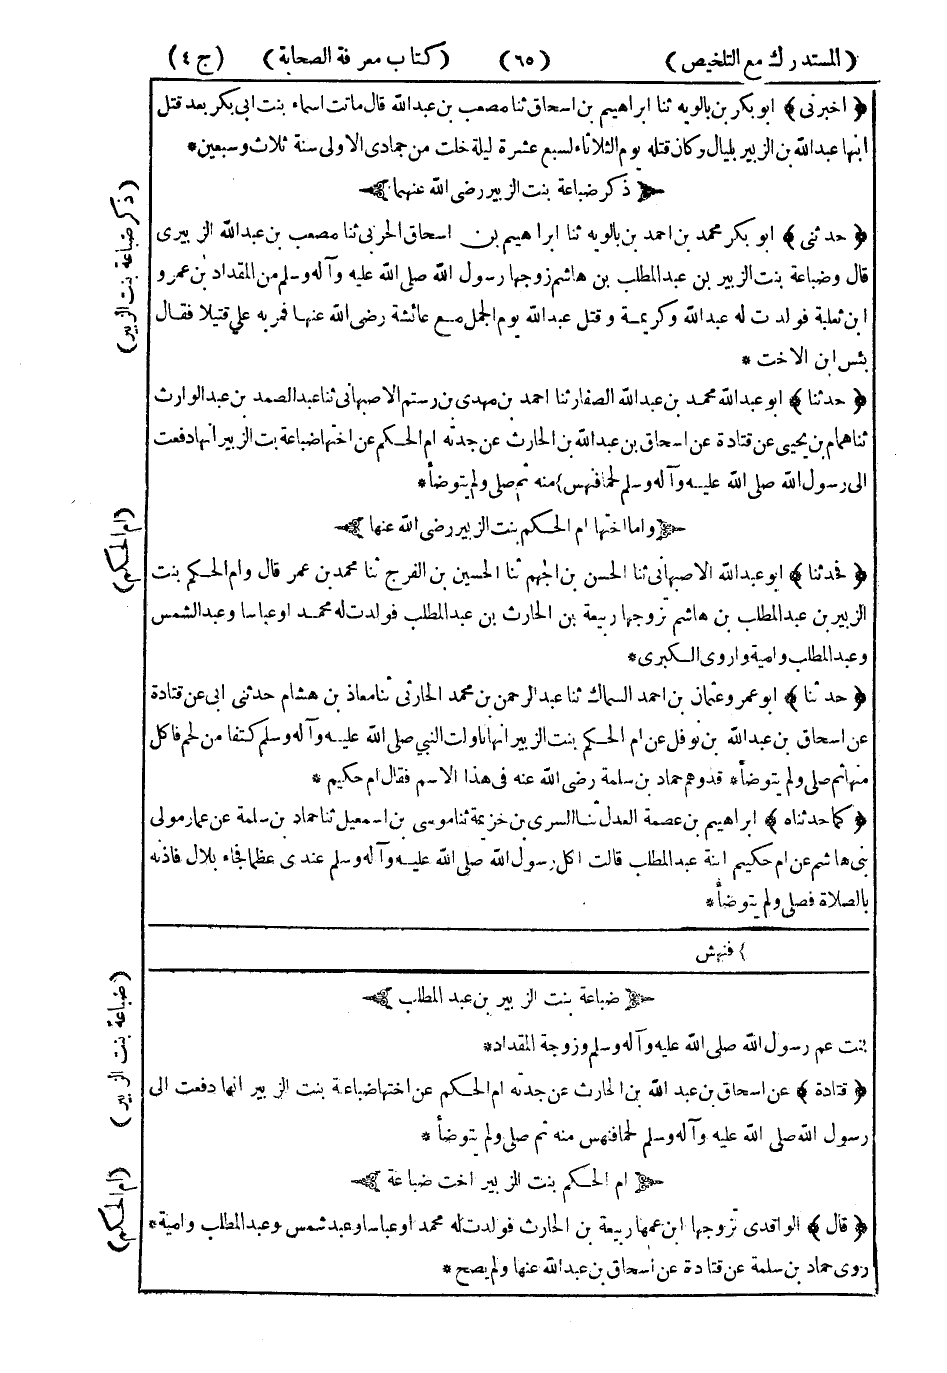 (المستدرك مع التلخيص) (٦٥) (كتاب معرفة الصحابة) (ج ٤)
﴿ اخبرنى ﴾ ابوبكر بن بالويه ثنا ابراهيم بن اسحاق ثنا مصعب بن عبدالله قال ماتت اسماء بنت ابى بكر بعد قتل
ابنها عبدالله بن الزبير بليال وكان قتله يوم الثلاثاء لسبع عشرة ليلة خلت من جمادى الاولى سنة ثلاث وسبعين*
ذكر ضباعة بنت الزبير رضى الله عنهما
(ذكر ضباعة بنت الزبير)
﴿ حدثنى ﴾ ابو بكر محمد بن احمد بن بالويه ثنا ابراهيم بن اسحاق الحربى ثنا مصعب بن عبدالله الزبيرى
قال وضباعة بنت الزبير بن عبدالمطلب بن هاشم زوجها رسول الله صلى الله عليه وآله وسلم من المقداد بن عمرو
ابن ثعلبة فولدت له عبدالله وكريمة وقتل عبدالله يوم الجمل مع عائشة رضى الله عنها فمر به علي قتيلا فقال
بئس ابن الاخت *
﴿ حدثنا ﴾ ابوعبدالله محمد بن عبدالله الصفار ثنا احمد بن مهدى بن رستم الاصبهانى ثنا عبدالصمد بن عبدالوارث
ثنا همام بن يحيى عن قتادة عن اسحاق بن عبدالله بن الحارث عن جدته ام الحكم عن اختها ضباعة بت الزبير انها دفعت
الى رسول الله صلى الله عليه وآله وسلم لحما فنهس} منه ثم صلى ولم يتوضأ*
واما اختها ام الحكم بنت الزبير رضى الله عنها
(ام الحكم)
﴿ فحدثنا ﴾ ابوعبدالله الاصبهانى ثنا الحسن بن الجهم ثنا الحسين بن الفرج ثنا محمد بن عمر قال وام الحكم بنت
الزبير بن عبدالمطلب بن هاشم تزوجها ربيعة بن الحارث بن عبدالمطلب فولدت له محمدا وعباسا وعبدالشمس
وعبدالمطلب وامية واروى الكبرى*
﴿ حدثنا ﴾ ابوعمرو عثمان بن احمد السماك ثنا عبدالرحمن بن محمد الحارثى ثنا معاذ بن هشام حدثنى ابى عن قتادة
عن اسحاق بن عبدالله بن نوفل عن ام الحكم بنت الزبير انها ناولت النبي صلى الله عليه وآله وسلم كتفا من لحم فاكل
منها ثم صلى ولم يتوضأ* قد وهم حماد بن سلمة رضى الله عنه فى هذا الاسم فقال ام حكيم *
﴿ كما حدثناه ﴾ ابراهيم بن عصمة العدل ثنا السرى بن خزيمة ثنا موسى بن اسمعيل ثنا حماد بن سلمة عن عمار مولى
بنى هاشم عن ام حكيم ابنة عبدالمطلب قالت اكل رسول الله صلى الله عليه وآله وسلم عندى عظما فجاء بلال فاذنه
بالصلاة فصلى ولم يتوضأ*
} فنهش
ضباعة بنت الزبير بن عبد المطلب
(ضباعة بنت الزبير)
بنت عم رسول الله صلى الله عليه وآله وسلم وزوجة المقداد*
﴿ قتادة ﴾ عن اسحاق بن عبد الله بن الحارث عن جدته ام الحكم عن اختها ضباعة بنت الزبير انها دفعت الى
رسول الله صلى الله عليه وآله وسلم لحما فنهس منه ثم صلى ولم يتوضأ *
ام الحكم بنت الزبير اخت ضباعة
(ام الحكم)
﴿ قال ﴾ الواقدى تزوجها ابن عمها ربيعة بن الحارث فولدت له محمدا وعباسا وعبدشمس وعبدالمطلب وامية*
روى حماد بن سلمة عن قتادة عن اسحاق بن عبدالله عنها ولم يصح*